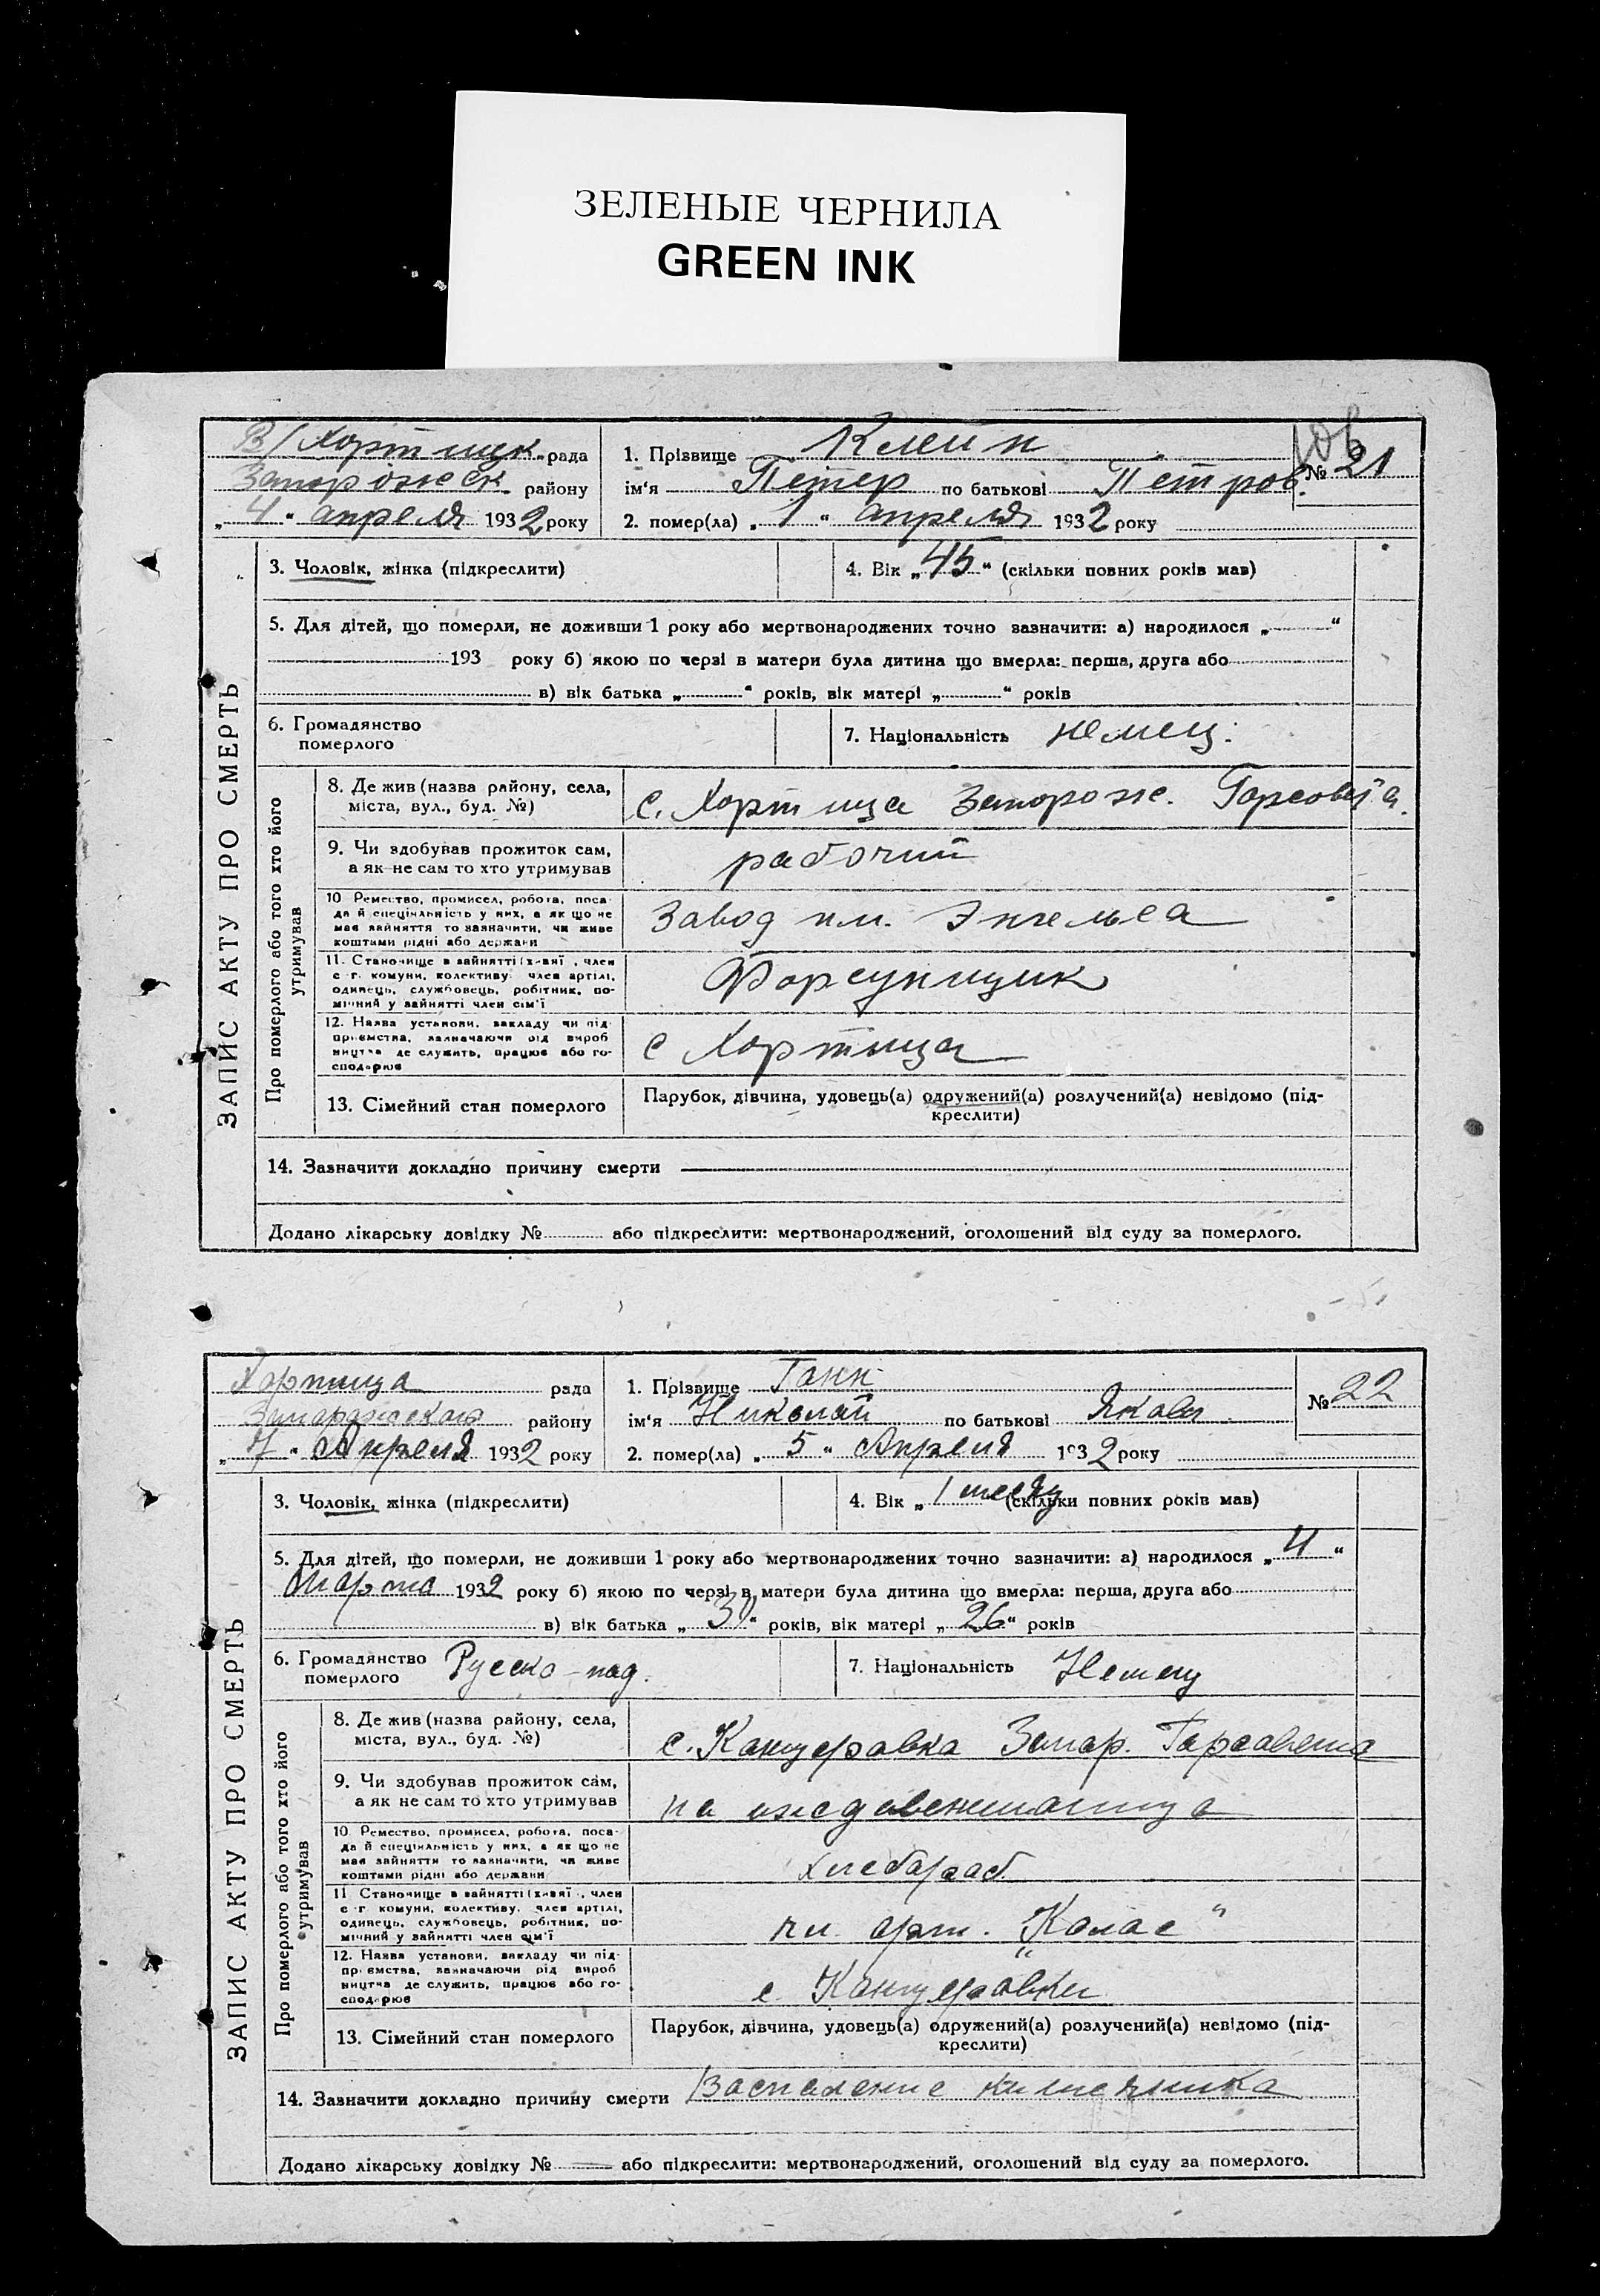 ЗЕЛЕНЫЕ ЧЕРНИЛА
GREEN INK
В/Хортицк. рада
Запорожск. району
„ 4 “ апреля 1932 року
1. Прізвище Клейн
ім‘я Петер по батькові Петров.
№ 21
2. помер(ла) „ 1 “ апреля 1932 року
ЗАПИС АКТУ ПРО СМЕРТЬ
3. Чоловік, жінка (підкреслити)
4. Вік „ 45 “ (скільки повних років мав)
5. Для дітей, що померли, не доживши 1 року або мертвонароджених точно зазначити: а) народилося „ “
193 року б) якою по черзі в матери була дитина що вмерла: перша, друга або
в) вік батька „ “ років, вік матері „ “ років
6. Громадянство померлого
7. Національність немец.
Про померлого або того хто його утримував
8. Де жив (назва району, села, міста, вул., буд. №)
с. Хортица Запорож. Горсовета.
9. Чи здобував прожиток сам, а як не сам то хто утримував
рабочий
10 Ремество, промисел, робота, посада й спеціяльність у них, а як що не мав зайняття то зазначити, чи живе коштами рідні або держави
Завод им. Энгельса
11. Становище в зайнятті (хазяї, член с-г. комуни, колективу, член артілі, одинець, службовець, робітник, помічний у зайнятті член сім‘ї
Форсунщик
12. Назва установи, закладу чи підприємства, зазначаючи рід виробництва де служить, працює або господарює
с Хортица
13. Сімейний стан померлого
Парубок, дівчина, удовець(а) одружений(а) розлучений(а) невідомо (підкреслити)
14. Зазначити докладно причину смерти
Додано лікарську довідку № або підкреслити: мертвонароджений, оголошений від суду за померлого.
Хортица рада
Запорожского району
„ 7 “ Апреля 1932 року
1. Прізвище Ганн
ім‘я Николай по батькові Яковл
№ 22
2. помер(ла) „ 5 “ Апреля 1932 року
ЗАПИС АКТУ ПРО СМЕРТЬ
3. Чоловік, жінка (підкреслити)
4. Вік „ 1 (скільки повних років мав)
5. Для дітей, що померли, не доживши 1 року або мертвонароджених точно зазначити: а) народилося „ 4 “
Марта 1932 року б) якою по черзі в матери була дитина що вмерла: перша, друга або
в) вік батька „ “ років, вік матері „ 26 “ років
6. Громадянство померлого Руско-под.
7. Національність Немец
Про померлого або того хто його утримував
8. Де жив (назва району, села, міста, вул., буд. №)
с. Канцеровка Запор. Горсовета
9. Чи здобував прожиток сам, а як не сам то хто утримував
на иждевенши отца
10. Ремество, промисел, робота, посада й спеціяльність у них, а як що не мав зайняття то зазначити, чи живе коштами рідні або держави
хлебароб.
11 Становище в зайнятті (хазяї, член с-г комуни, колективу, член артілі, одинець, службовець, робітник, помічний у зайнятті член сім‘ї
чл. арт. „Колос“
12. Назва установи, закладу чи підприємства, зазначаючи рід виробництва де служить, працює або господарює
с. Канцеровки
13. Сімейний стан померлого
Парубок, дівчина, удовець(а) одружений(а) розлучений(а) невідомо (підкреслити)
14. Зазначити докладно причину смерти Воспаление кишечника
Додано лікарську довідку № або підкреслити: мертвонароджений, оголошений від суду за померлого.